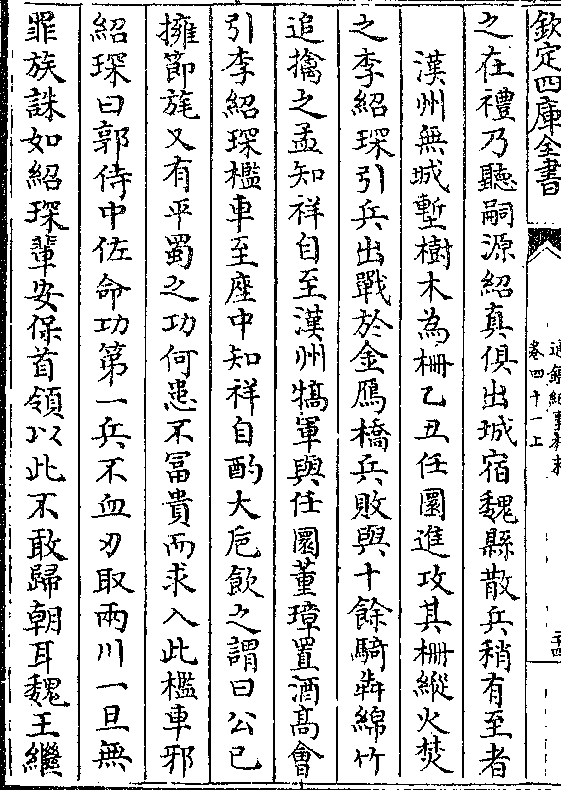 欽定四庫全書
通鑑紀事本末
卷四十一上
之在禮乃聽嗣源紹真俱出城宿魏縣散兵稍有至者
漢州無城塹樹木為柵乙丑任圜進攻其柵縱火焚
之李紹琛引兵出戰於金鴈橋兵敗與十餘騎犇綿竹
追擒之孟知祥自至漢州犒軍與任圜董璋置酒高會
引李紹琛檻車至座中知祥自酌大巵飲之謂曰公已
擁節旄又有平蜀之功何患不冨貴而求入此檻車邪
紹琛曰郭侍中佐命功第一兵不血刃取兩川一旦無
罪族誅如紹琛輩安保首領以此不敢歸朝耳魏王繼